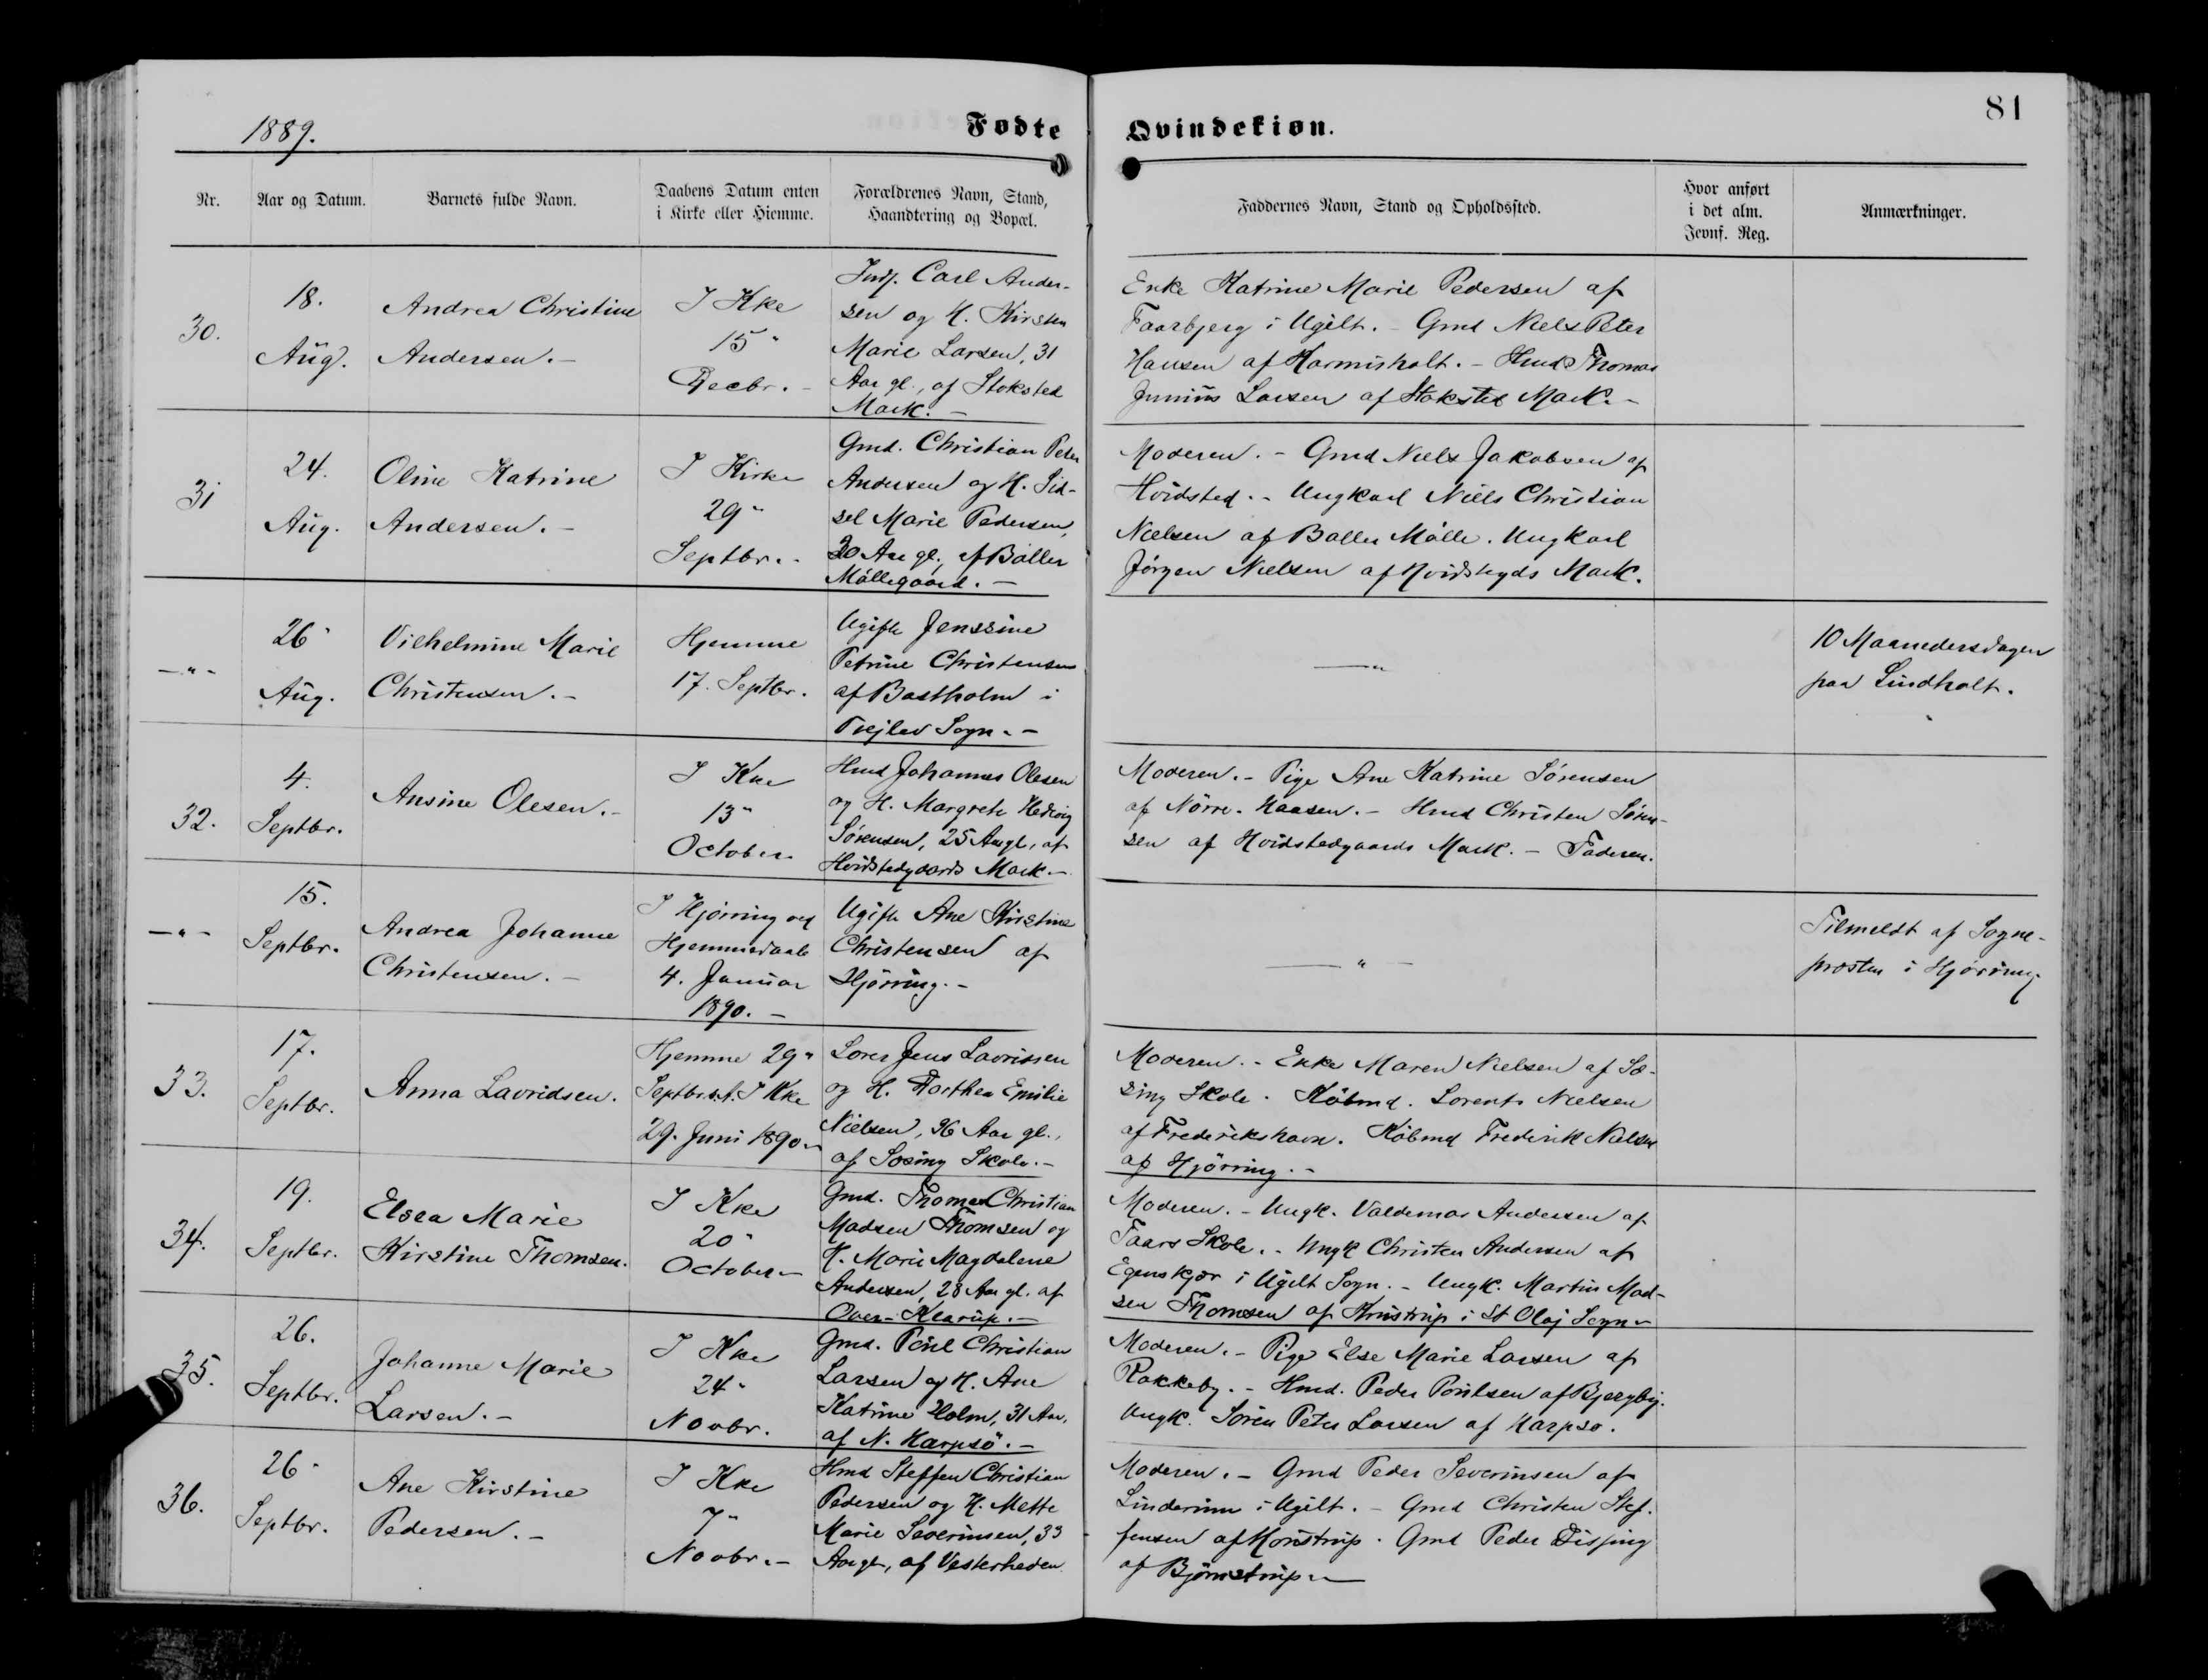 81
1889.
Fødte Qvindekiøn.
Nr.
Aar og Datum.
Barnets fulde Navn.
Daabens Datum enten
i Kirke eller Hiemme.
Forældrenes Navn, Stand,
Haandtering og Bopæl.
Faddernes Navn, Stand og Opholdssted.
Hvor anført
i det alm.
Jevnf. Reg.
Anmærkninger.
30.
18.
Aug.
Andrea Christine
Andersen.-
I Kke
15"
Decbr.-
Inds. Carl Ander-
sen og H. Kirsten
Marie Larsen, 31
Aar gl., af Stoksted
Mark.-
Enke Katrine Marie Pedersen af
Faarbjerg i Ugilt.- Gmd Niels Peter
Hansen af Harmisholt.- Hmd Thomas
Junius Larsen af Stoksted Mark.-
31
24.
Aug.
Oline Katrine
Andersen.-
I Kirke
29"
Septbr.-
Gmd. Christian Peter
Andersen og H. Sid-
sel Marie Pedersen,
30 Aar gl., af Baller
Möllegaard.-
Moderen.- Gmd Niels Jakobsen af
Hvidsted.- Ungkarl Niels Christian
Nielsen af Baller Mölle. Ungkarl
Jörgen Nielsen af Hvidstgds Mark.
-"-
26"
Aug.
Vilhelmine Marie
Christensen.-
Hjemme
17. Septbr.
Ugifte Jenssine
Petrine Christensen
af Bastholm i
Trejlev Sogn.-
-"
10 Maanedersdagen
paa Lindholt.
32.
4.
Septbr.
Ansine Olesen.-
I Kke
13"
October
Hmd Johannes Olesen
og H. Margrete Hedvig
Sörensen, 25 Aar gl., af
Hvidstedgaards Mark.-
Moderen.- Pige Ane Katrine Sörensen
af Nörre-            .- Hmd Christen Sören-
sen af Hvidstedgaards Mark.- Faderen.
-"-
15.
Septbr.
Andrea Johanne
Christensen.-
I Hjörring ved
Hjemmedaab
4. Januar
1890.-
Ugifte Ane Kirstine
Christensen af
Hjörring.-
-"-
Tilmeldt af Sogne-
præsten i Hjörring.
33.
17.
Septbr.
Anna Lavridsen.
Hjemme 29"
Septbr. s.A. I Kke
29. Juni 1890.-
Lærer Jens Lavrissen
og H. Dorthea Emilie
Nielsen, 36 Aar gl.,
af Sæsing Skole.-
Moderen.- Enke Maren Nielsen af Sæ-
sing Skole. Köbmd. Lorents Nielsen
af Frederikshavn. Köbmd Frederik Nielsen
af Hjörring.-
34.
19.
Septbr.
Elsea Marie
Kirstine Thomsen.
I Kke
20"
October-
Gmd. Thomas Christian
Madsen Thomsen og
H. Marie Magdalene
Andersen, 28 Aar gl. af
Over-Klarup.-
Moderen.- Ungk. Valdemar Andersen af
Taars Skole.- Ungk Christen Andersen af
Egenskjær i Ugilt Sogn.- Ungk. Martin Mad-
sen Thomsen af Krustrup i St Olaj Sogn-
35.
26.
Septbr.
Johanne Marie
Larsen.-
I Kke
24"
Novbr.
Gmd. Poul Christian
Larsen og H. Ane
Katrine Holm, 31 Aar,
af N. Harpsö.-
Moderen.- Pige Else Marie Larsen af
Rakkeby.- Hmd. Peder Poulsen af Bjergby.
Ungk. Sören Peter Larsen af Harpsö.
36.
26"
Septbr.
Ane Kirstine
Pedersen.-
I Kke
7"
Novbr.-
Hmd Steffen Christian
Pedersen og H. Mette
Marie Severinsen, 33
Aar gl., af Vesterheden
Moderen.- Gmd Peder Severinsen af
Linderum i Ugilt.- Gmd Christen Stef-
fensen af Morstrup. Gmd Peder Dissing
af Björnstrup.-